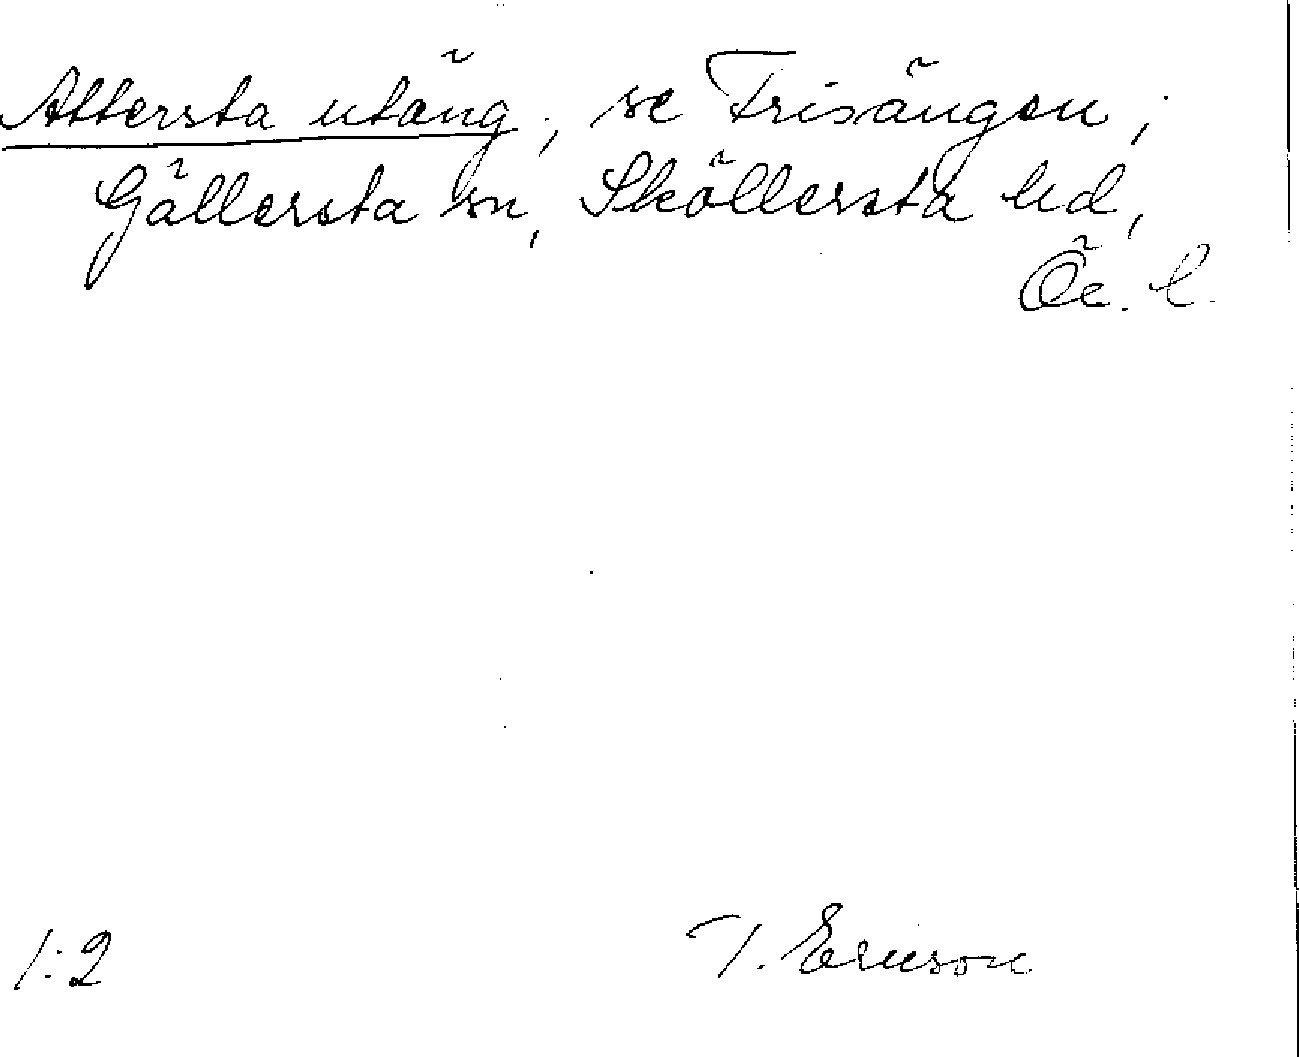 Attersta utäng, se Frisängen;
Gällersta sn, Sköllersta hd,
Ör. l.
1:2
T. Ericson